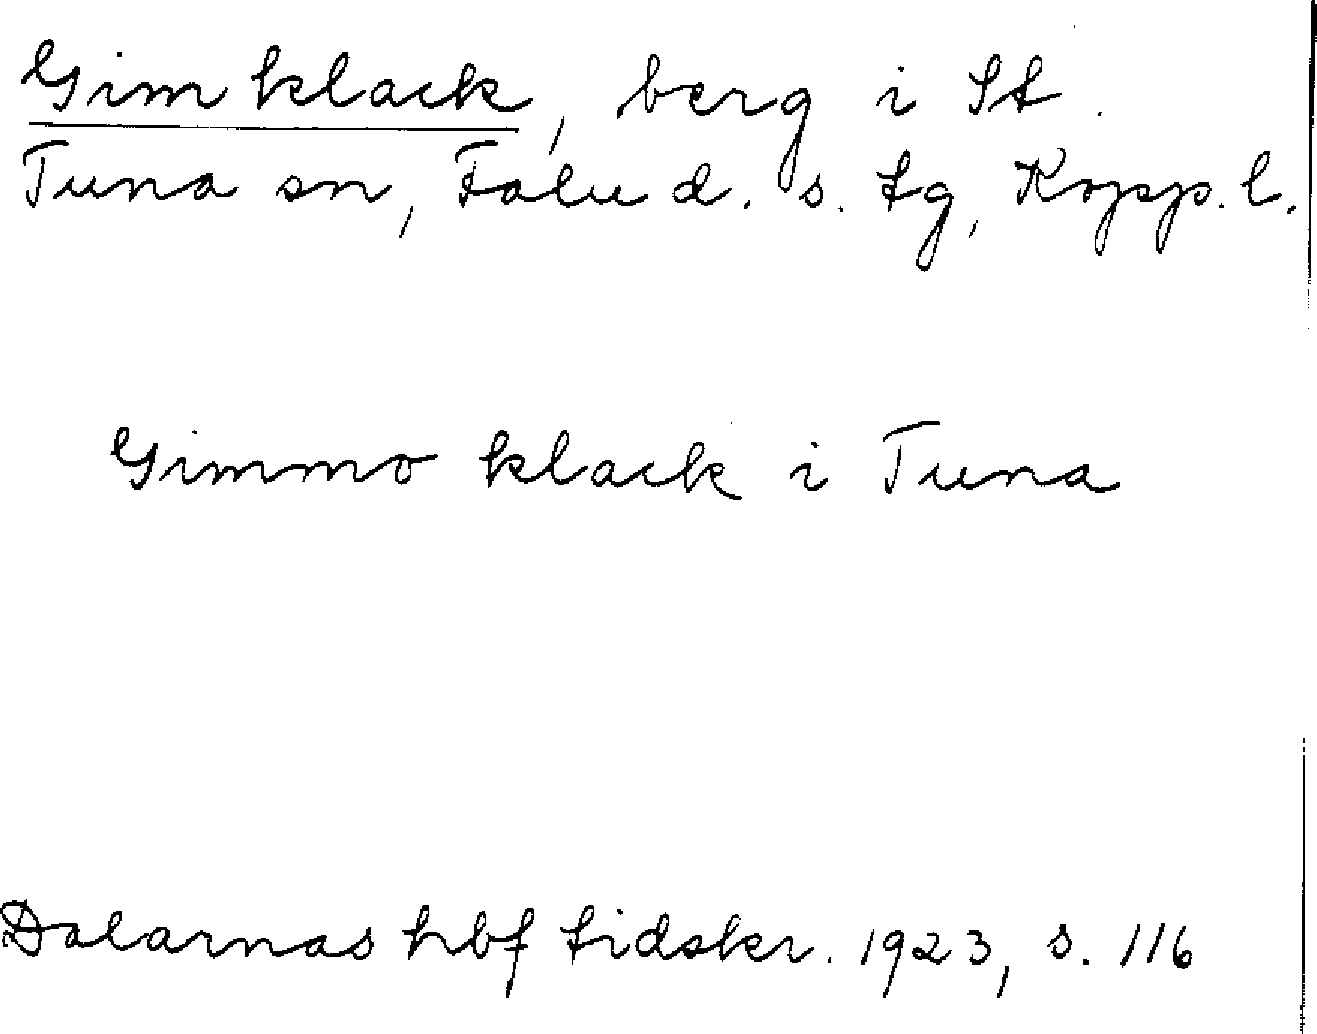 Gimklack, berg i St.
Tuna sn, Falu d. s. tg, Kopp. l.
Gimmo klack i Tuna
Dalarnas hbf tidskr. 1923, s. 116